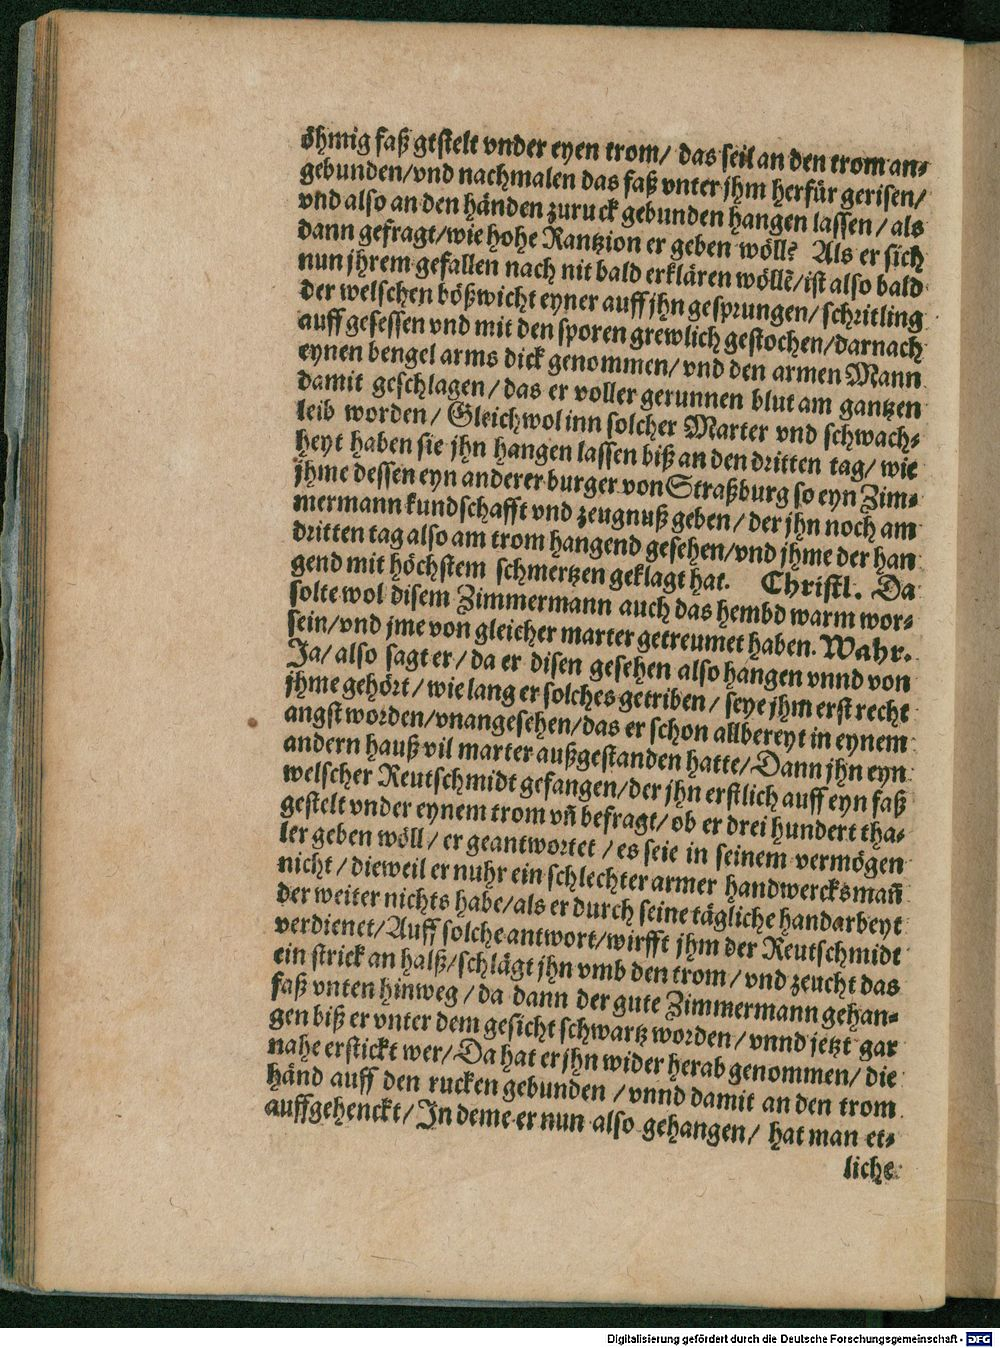 öhmig faß gestelt vnder eyen trom/ das seil an den trom an⸗
gebunden/vnd nachmalen das faß vnter jhm herfür gerisen/
vnd also an den händen zuruck gebunden hangen lassen/ als
dann gefragt/wie hohe Rantzion er geben wöll? Als er sich
nun jhrem gefallen nach nit bald erklären wöllẽ/ist also bald
der welschen bößwicht eyner auff jhn gesprungen/ schritling
auff gesessen vnd mit den sporen grewlich gestochen/darnach
eynen bengel arms dick genommen/ vnd den armen Mann
damit geschlagen/ das er voller gerunnen blut am gantzen
leib worden/ Gleichwol inn solcher Marter vnd schwach⸗
heyt haben sie jhn hangen lassen biß an den dritten tag/ wie
jhme dessen eyn anderer burger von Straßburg so eyn Zim⸗
mermann kundschafft vnd zeugnuß geben/ der jhn noch am
dritten tag also am trom hangend gesehen/vnd jhme der han
gend mit höchstem schmertzen geklagt hat. Christl. Da
solte wol disem Zimmermann auch das hembd warm wor⸗
sein/vnd jme von gleicher marter getreumet haben. Wahr.
Ja/ also sagt er/ da er disen gesehen also hangen vnnd von
jhme gehört/ wie lang er solches getriben/ seye jhm erst recht
angst worden/vnangesehen/das er schon allbereyt in eynem
andern hauß vil marter außgestanden hatte/ Dann jhn eyn
welscher Reutschmidt gefangen/der jhn erstlich auff eyn faß
gestelt vnder eynem trom vñ befragt/ ob er drei hundert tha⸗
ler geben wöll/ er geantwortet/ es seie in seinem vermögen
nicht/ dieweil er nuhr ein schlechter armer handwercksmañ
der weiter nichts habe/als er durch seine tägliche handarbeyt
verdienet/Auff solche antwort/wirfft jhm der Reutschmidt
ein strick an halß/schlägt jhn vmb den trom/ vnd zeucht das
faß vnten hinweg/ da dann der gute Zimmermann gehan⸗
gen biß er vnter dem gesicht schwartz worden/ vnnd jetzt gar
nahe erstickt wer/ Da hat er jhn wider herab genommen/ die
händ auff den rucken gebunden / vnnd damit an den trom
auffgehenckt/ In deme er nun also gehangen/ hat man et⸗
liche
Digitalisierung gefördert durch die Deutsche Forschungsgemeinschaft - DFG